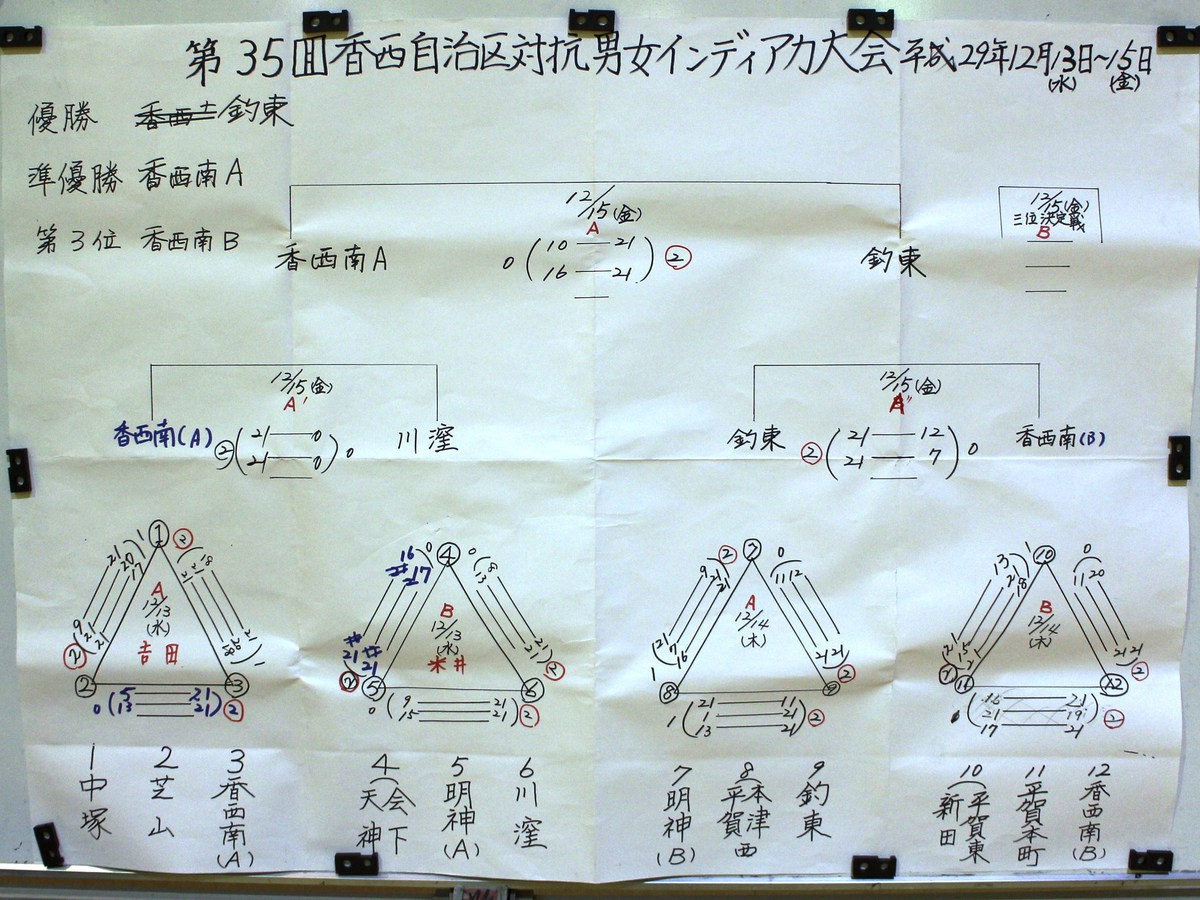 第35回香西自治区対抗男女インディアカ大会 平成29年12月13日~15日
(水) (金)
優勝 釣東
準優勝 香西南A
第3位 香西南B
12/15(金)
A
香西南A
0 (10—21
16—21) ②
釣東
12/15(金)
三位決定戦
B
12/15(金)
A'
香西南(A)
②(21—0
21—0)0
川窪
12/15(金)
A''
釣東
②(21—12
21—7)0
香西南(B)
①
②
③
A
12/13
(水)
吉田
0(15 21
13 21)②
④
⑤
⑥
B
12/13
(水)
米井
0(9 21
15 21)②
⑦
⑧
⑨
A
12/14
(木)
1(21 11
1 21
13 21)②
⑩
⑪
⑫
B
12/14
(木)
21 19
17 21
②
1 中塚
2 芝山
3 香西南(A)
4 天神 会下
5 明神(A)
6 川窪
7 明神(B)
8 本津 平賀西
9 釣東
10 平賀東 新田
11 平賀本町
12 香西南(B)